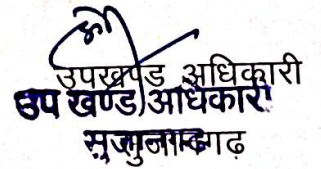 उपखण्ड अधिकारी
उप खण्ड अधिकारी
सुजानगढ़